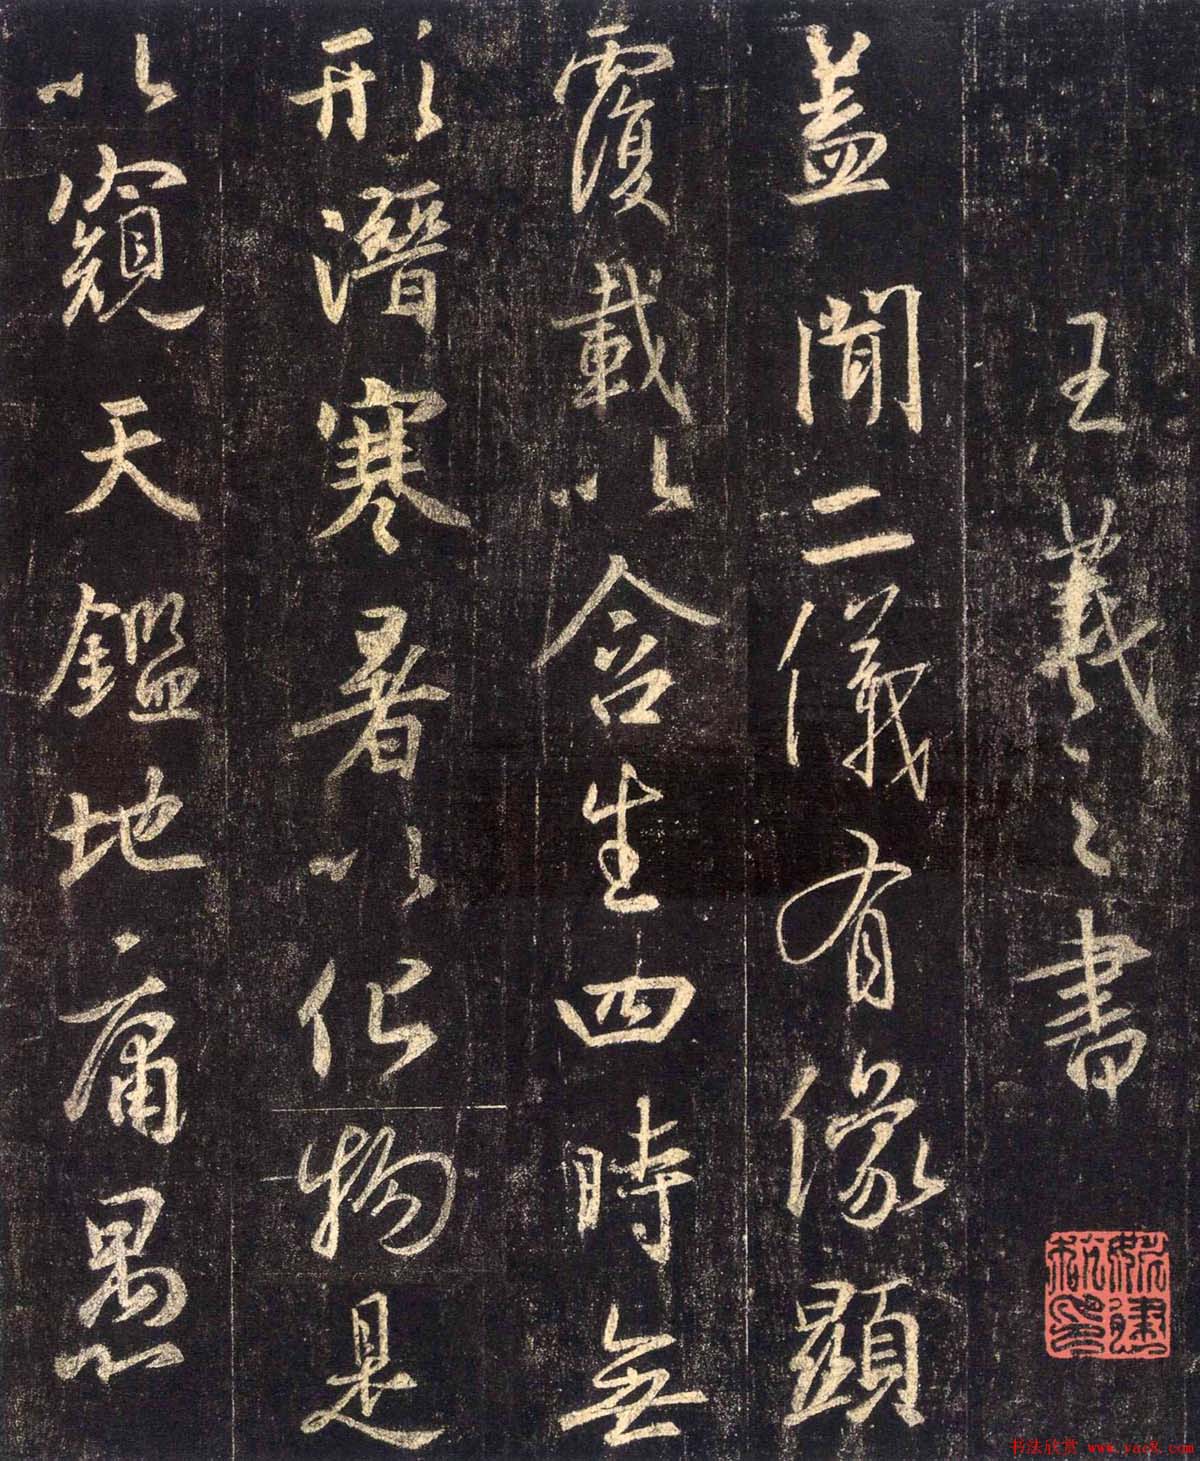 王羲之書
蓋聞二儀有像顯
覆載以含生四時無
形潛寒暑以化物是
以窺天鑑地庸愚
书法欣赏 www.yac8.com